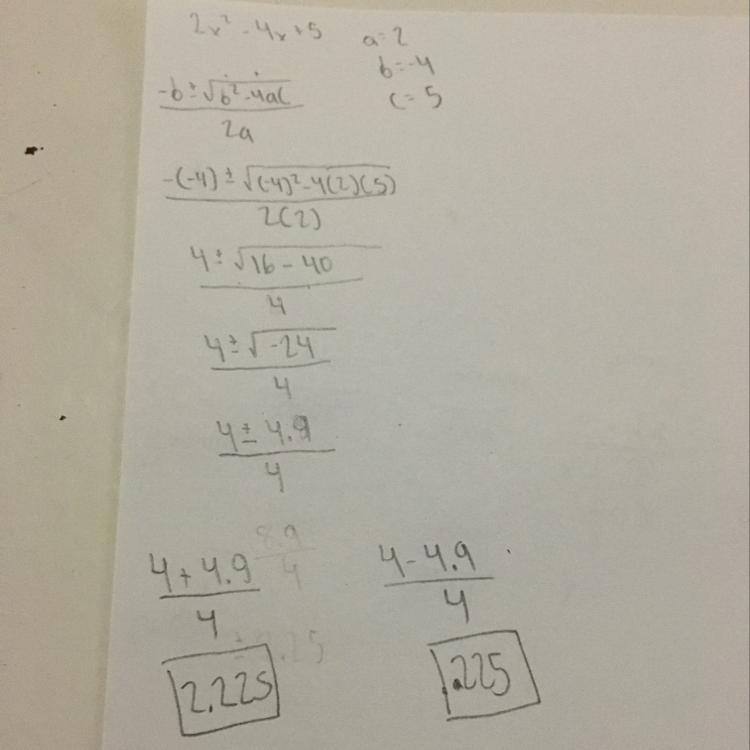 2x² - 4x + 5
a = 2
b = -4
c = 5
-b ± √b² - 4ac
2a
-(-4) ± √(-4)² - 4(2)(5)
2(2)
4 ± √16 - 40
4
4 ± √-24
4
4 ± 4.9
4
8.9
4
4 + 4.9
4
4 - 4.9
4
2.225
.225